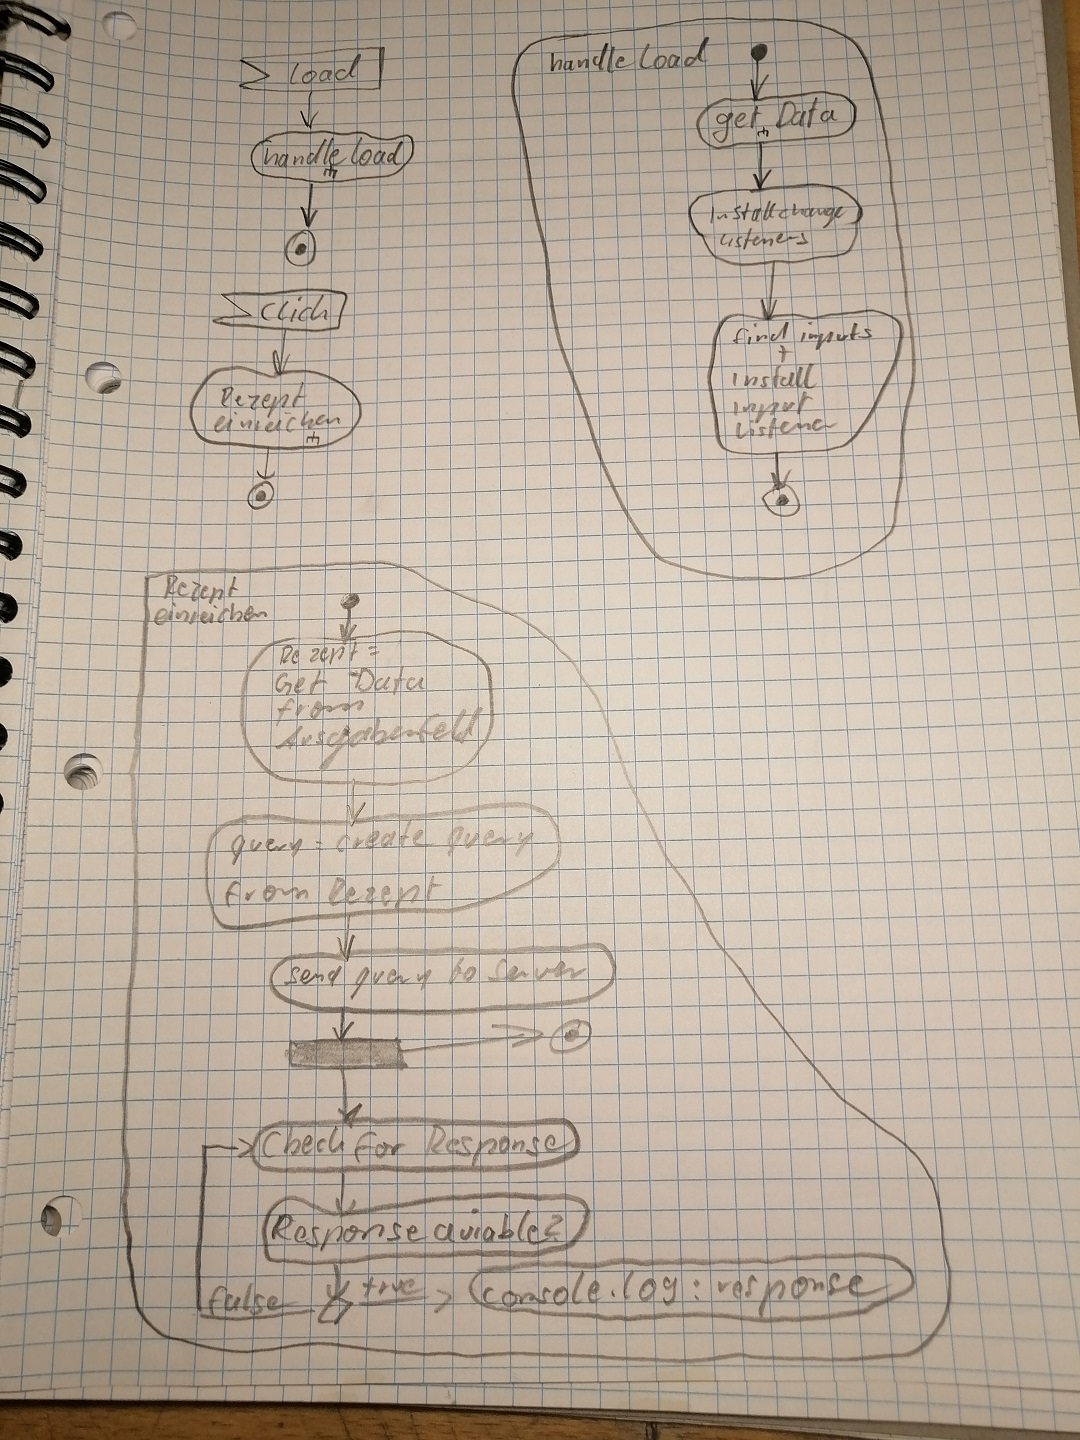 load
handle load
Click
Rezept
einreichen
handle load
get Data
Install change
Listeners
find inputs
+
Install
input
Listener
Rezept
einreichen
Rezept =
Get Data
from
Ausgabenfeld
query = create query
from Rezept
send query to Server
Check for Response
Response aviable?
false
true
console.log: response